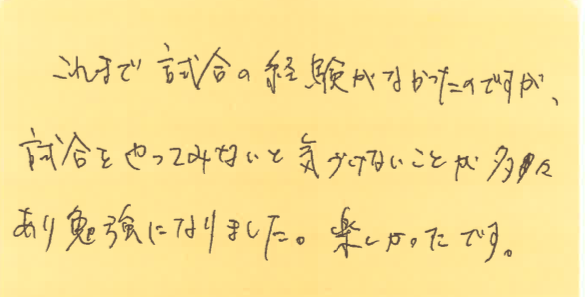 これまで試合の経験がなかったのですが、
試合をやってみないと気づけないことが多々
あり勉強になりました。楽しかったです。